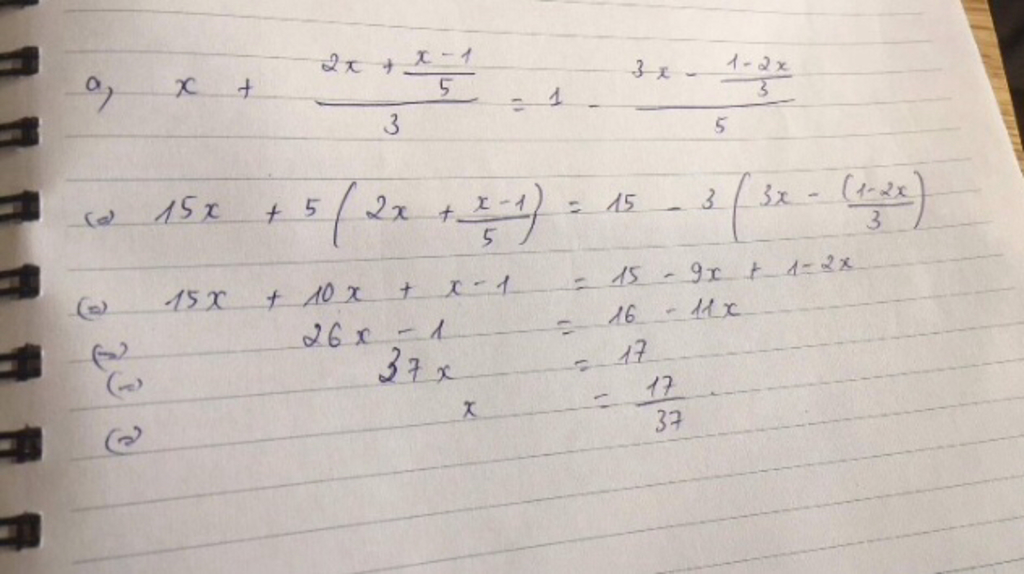 a, x + (2x + (x - 1)/5)/3 = 1 - (3x - (1-2x)/3)/5
(=) 15x + 5(2x + (x-1)/5) = 15 - 3(3x - (1-2x)/3)
(=) 15x + 10x + x-1 = 15 - 9x + 1-2x
(=) 26x - 1 = 16 - 11x
(=) 37x = 17
(=) x = 17/37.